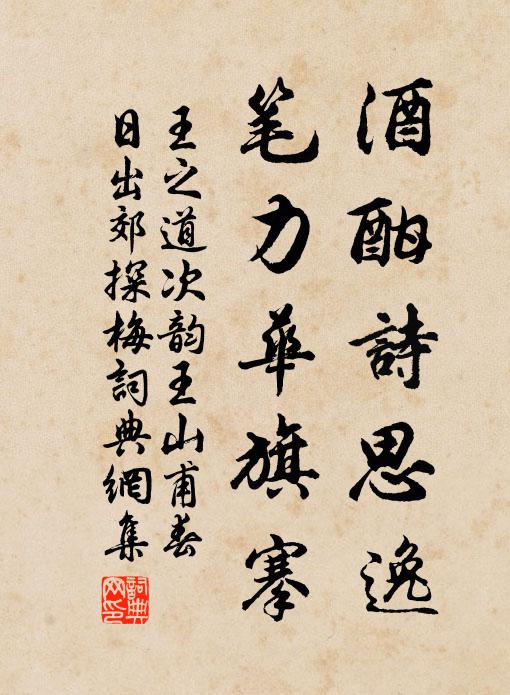 酒酣詩思逸
笔力華旗搴
王之道次韵王山甫春
日出郊探梅詞典網集
詞典網印